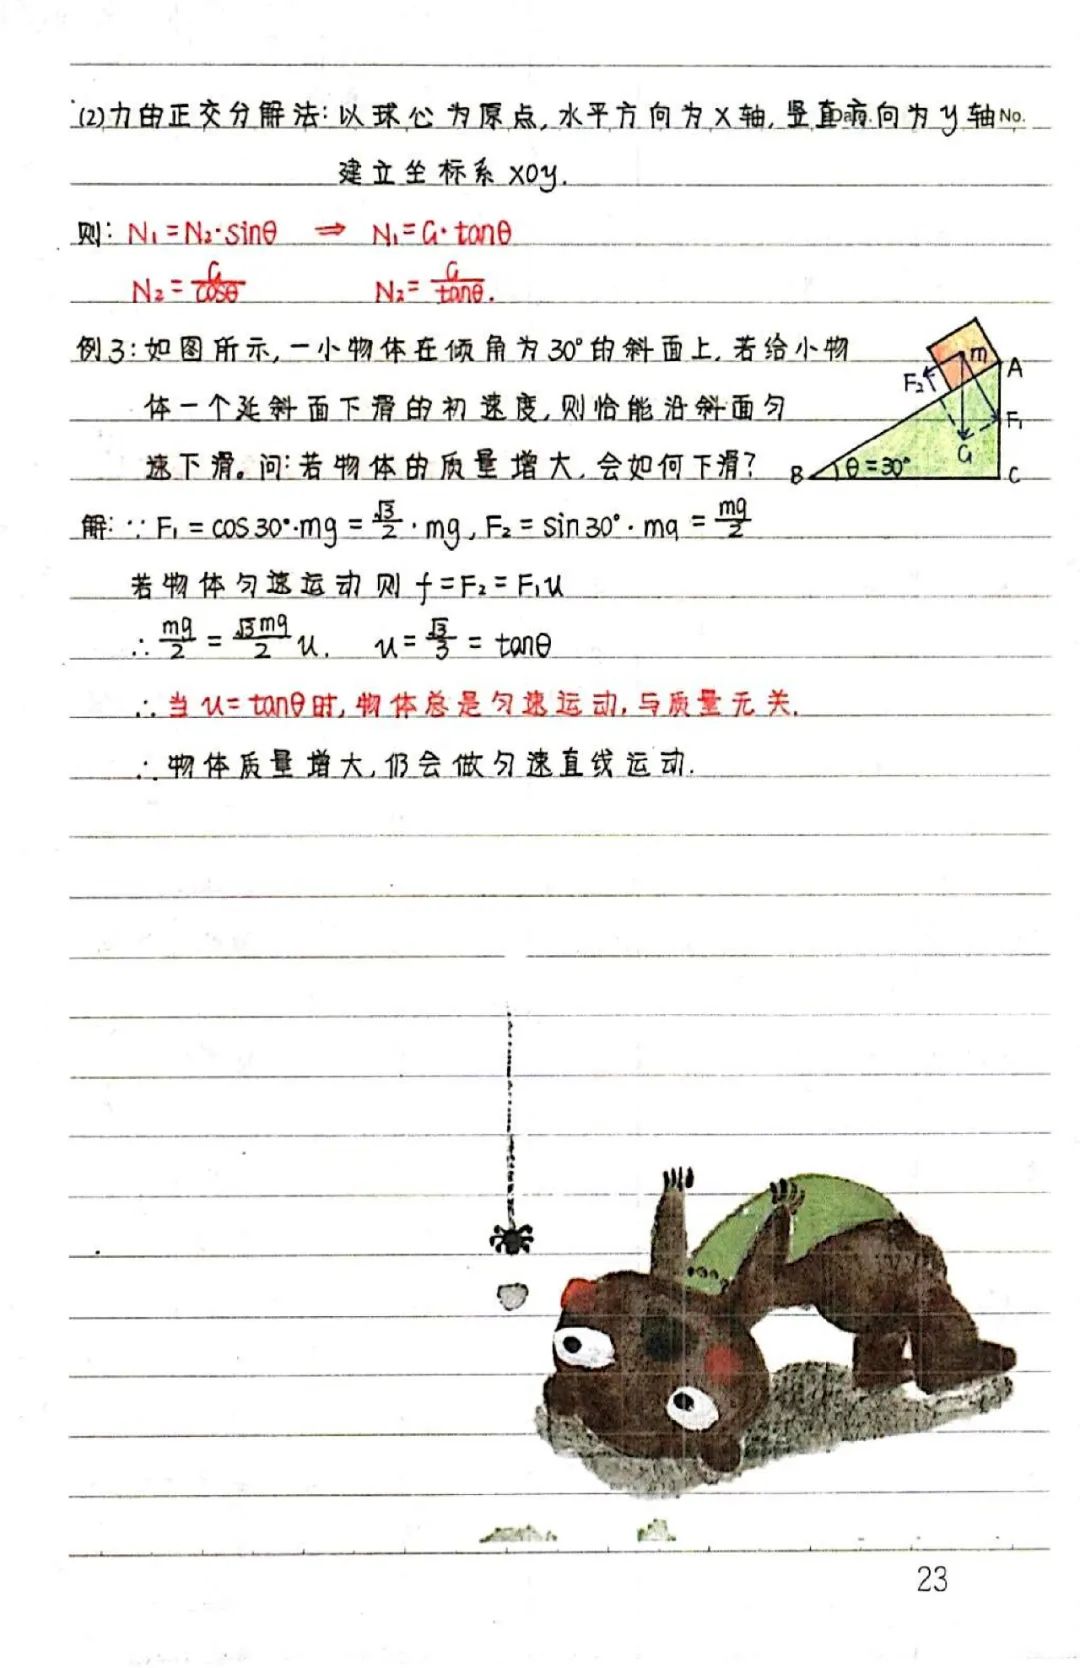 (2)力的正交分解法:以球心为原点,水平方向为X轴,竖直方向为y轴 No.
建立坐标系xoy.
则: N₁=N₂·sinθ ⇒ N₁=G·tanθ
N₂=G/cosθ N₂=G/tanθ.
例3:如图所示,一小物体在倾角为30°的斜面上,若给小物
体一个延斜面下滑的初速度,则恰能沿斜面匀
速下滑。问:若物体的质量增大,会如何下滑?
m
A
F₂
F₁
G
B
θ=30°
C
解:∵F₁=cos30°·mg=√3/2·mg,F₂=sin30°·mg=mg/2
若物体匀速运动则f=F₂=F₁u
∴mg/2=√3mg/2 u. u=√3/3=tanθ
∴当u=tanθ时,物体总是匀速运动,与质量无关.
∴物体质量增大,仍会做匀速直线运动.
23